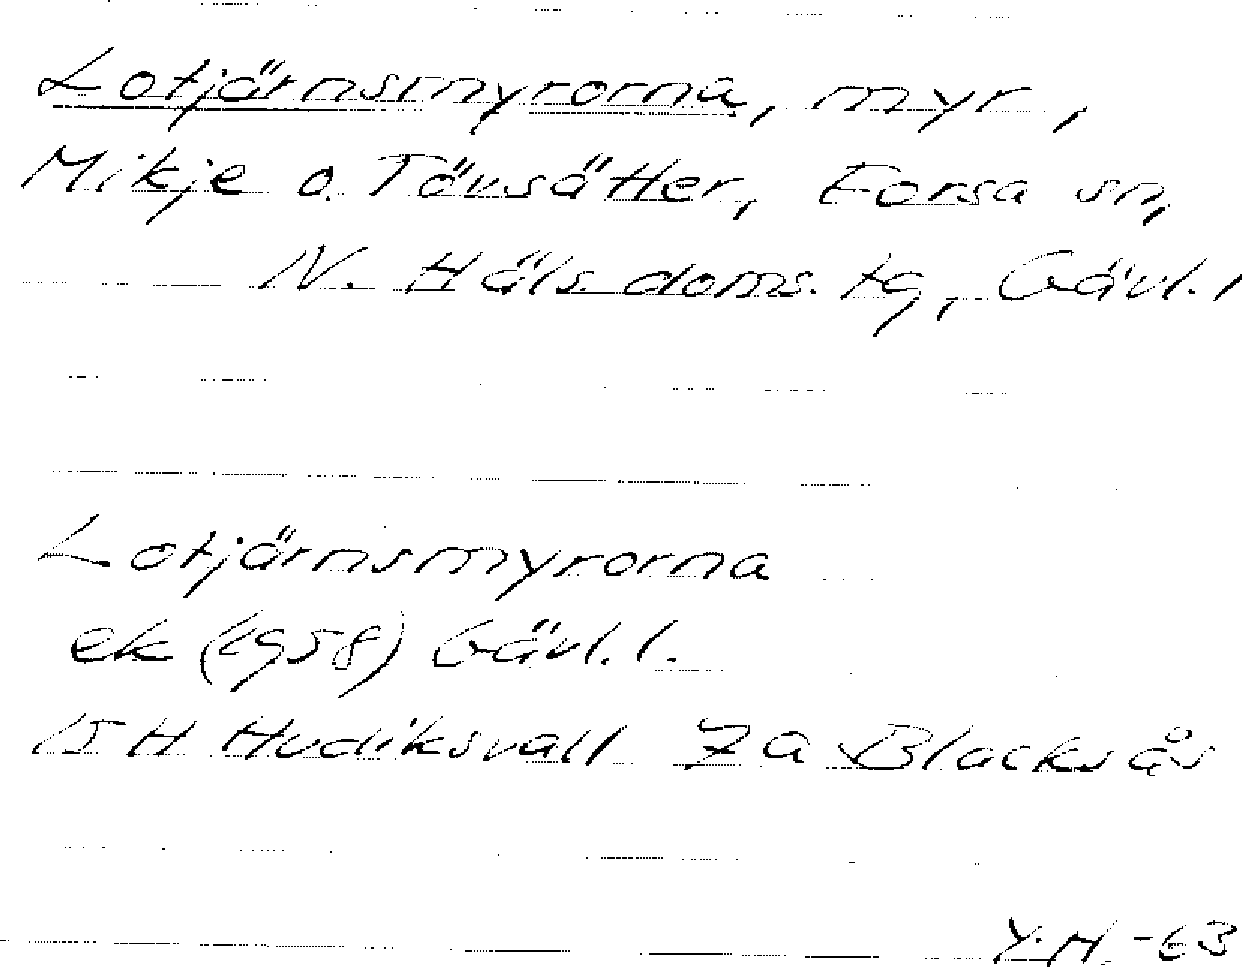 Lotjärnsmyrorna, myr,
Mikje o. Tövsätter, Forsa sn,
N. Häls. doms. tg, Gävl. l
Lotjärnsmyrorna
ek (1958) Gävl. l.
15 H Hudiksvall 7 a Blacksås
Y.H. -63